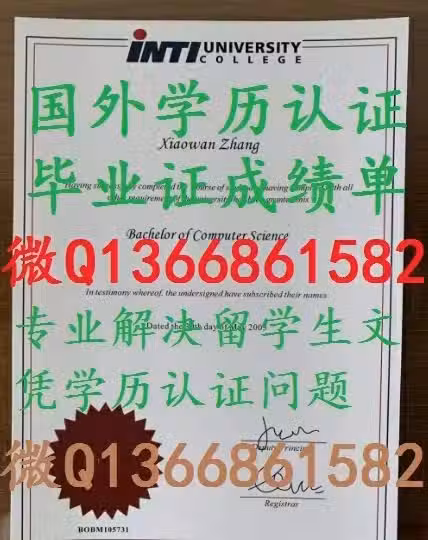 INTI UNIVERSITY
COLLEGE
国外学历认证
Xiaowan Zhang
毕业证成绩单
Bachelor of Computer Science
微Q1366861582
In testimony whereof, the undersigned have subscribed their names
专业解决留学生文
Dated the day of May 2009
凭学历认证问题
Deputy Principal
微Q1366861582
Registrar
BOBM105731